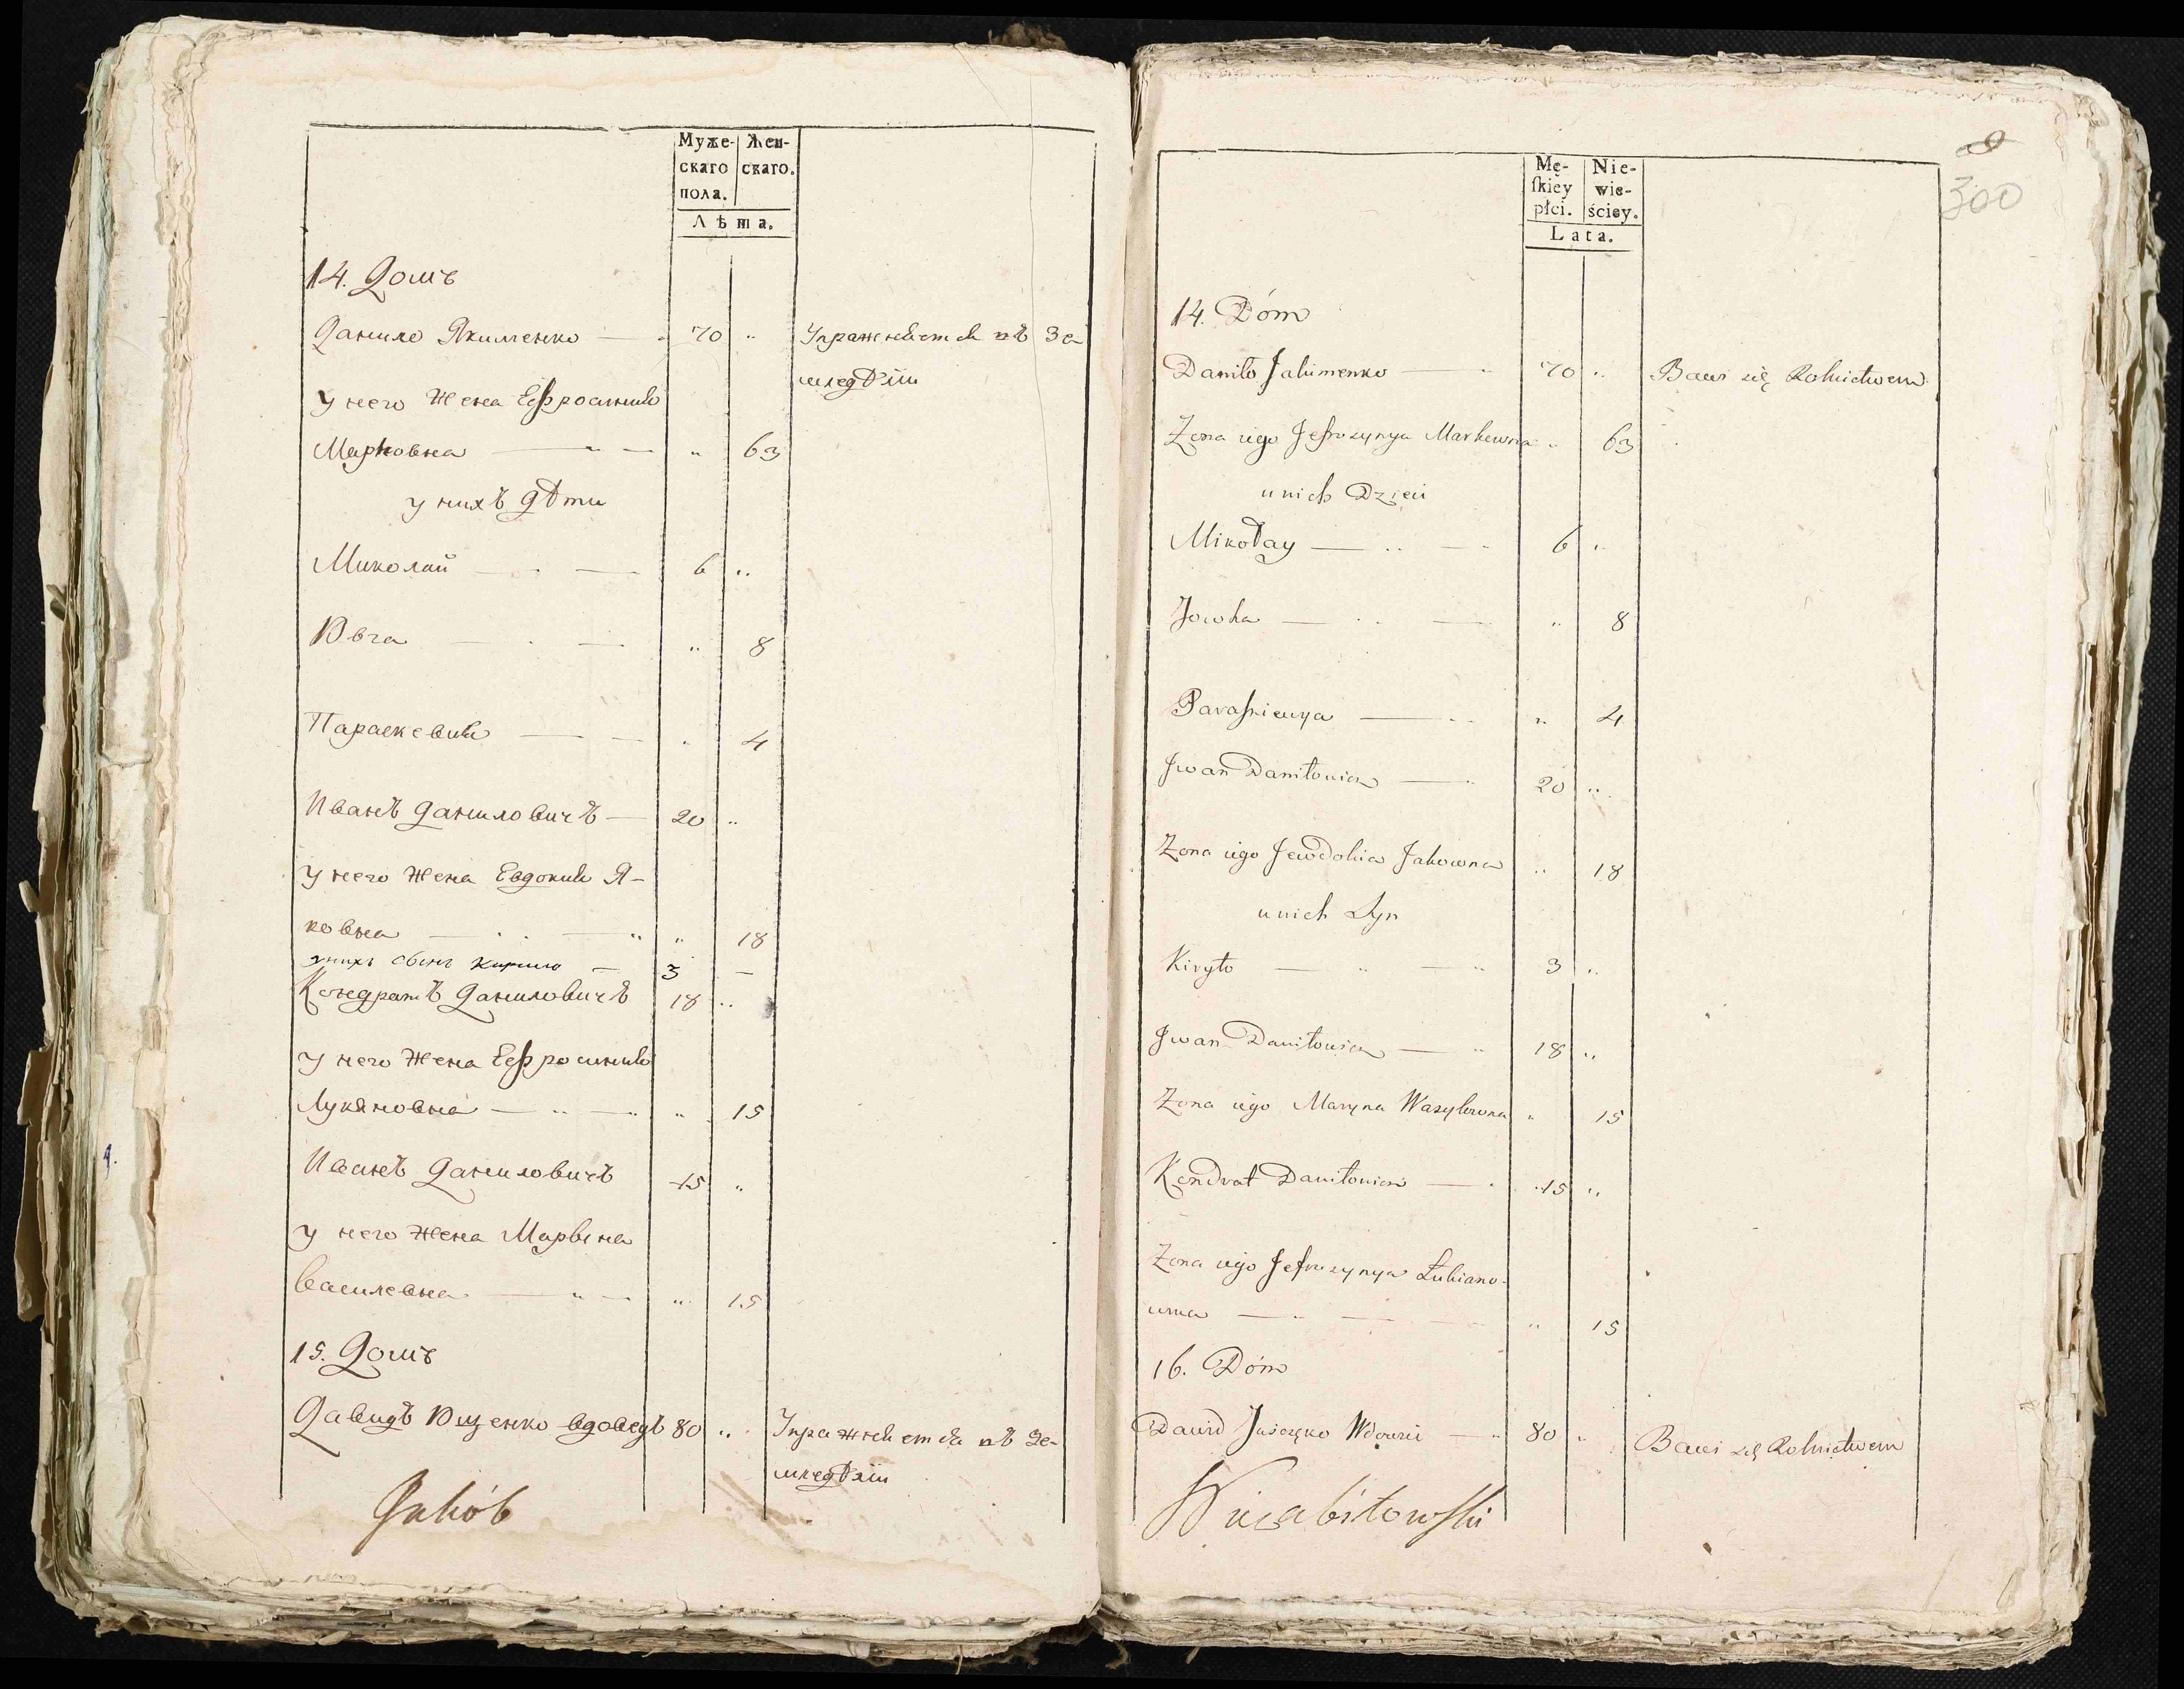 Муже- Жен-
скаго скаго.
пола.
Лѣта.
14. Домъ
Данило Якименко — 70 „ Упражняется въ зе-
мледѣліи
у него жена Ефросинія
Марковна — „ 63
у нихъ дѣти
Миколай — 6 „
Ювга — „ 8
Параскевия — „ 4
Иванъ Даниловичъ — 20 „
у него жена Евдокия Я-
ковна — „ 18
у нихъ сынъ Кирило — 3 —
Кондратъ Даниловичъ 18 „
у него жена Ефросиния
Лукяновна — „ 15
Иванъ Даниловичъ 15 „
у него жена Марына
Василевна — „ 15
15. Домъ
Давидъ Ющенко вдовецъ 80 „ Упражняется въ зе-
мледѣліи
Jakób
9
300
Mę- Nie-
skiey wie-
płci. ściey.
Lata.
14. Dóm
Daniło Jakimenko — 70 „ Bawi się Rolnictwem
Żona iego Jefrozynya Markowna „ 63
u nich Dzieci
Mikołay — 6 „
Jowha — „ 8
Paraskiewya — „ 4
Jwan Daniłowicz — 20 „
Żona iego Jewdokia Jakowna „ 18
u nich Syn
Kiryło — 3 „
Jwan Daniłowicz — 18 „
Żona iego Maryna Wasylowna „ 15
Kondrat Daniłowicz — 15 „
Żona iego Jefrozynya Łukiano-
wna — „ 15
16. Dóm
Dawid Juszczęko Wdowiec — 80 „ Bawi się Rolnictwem